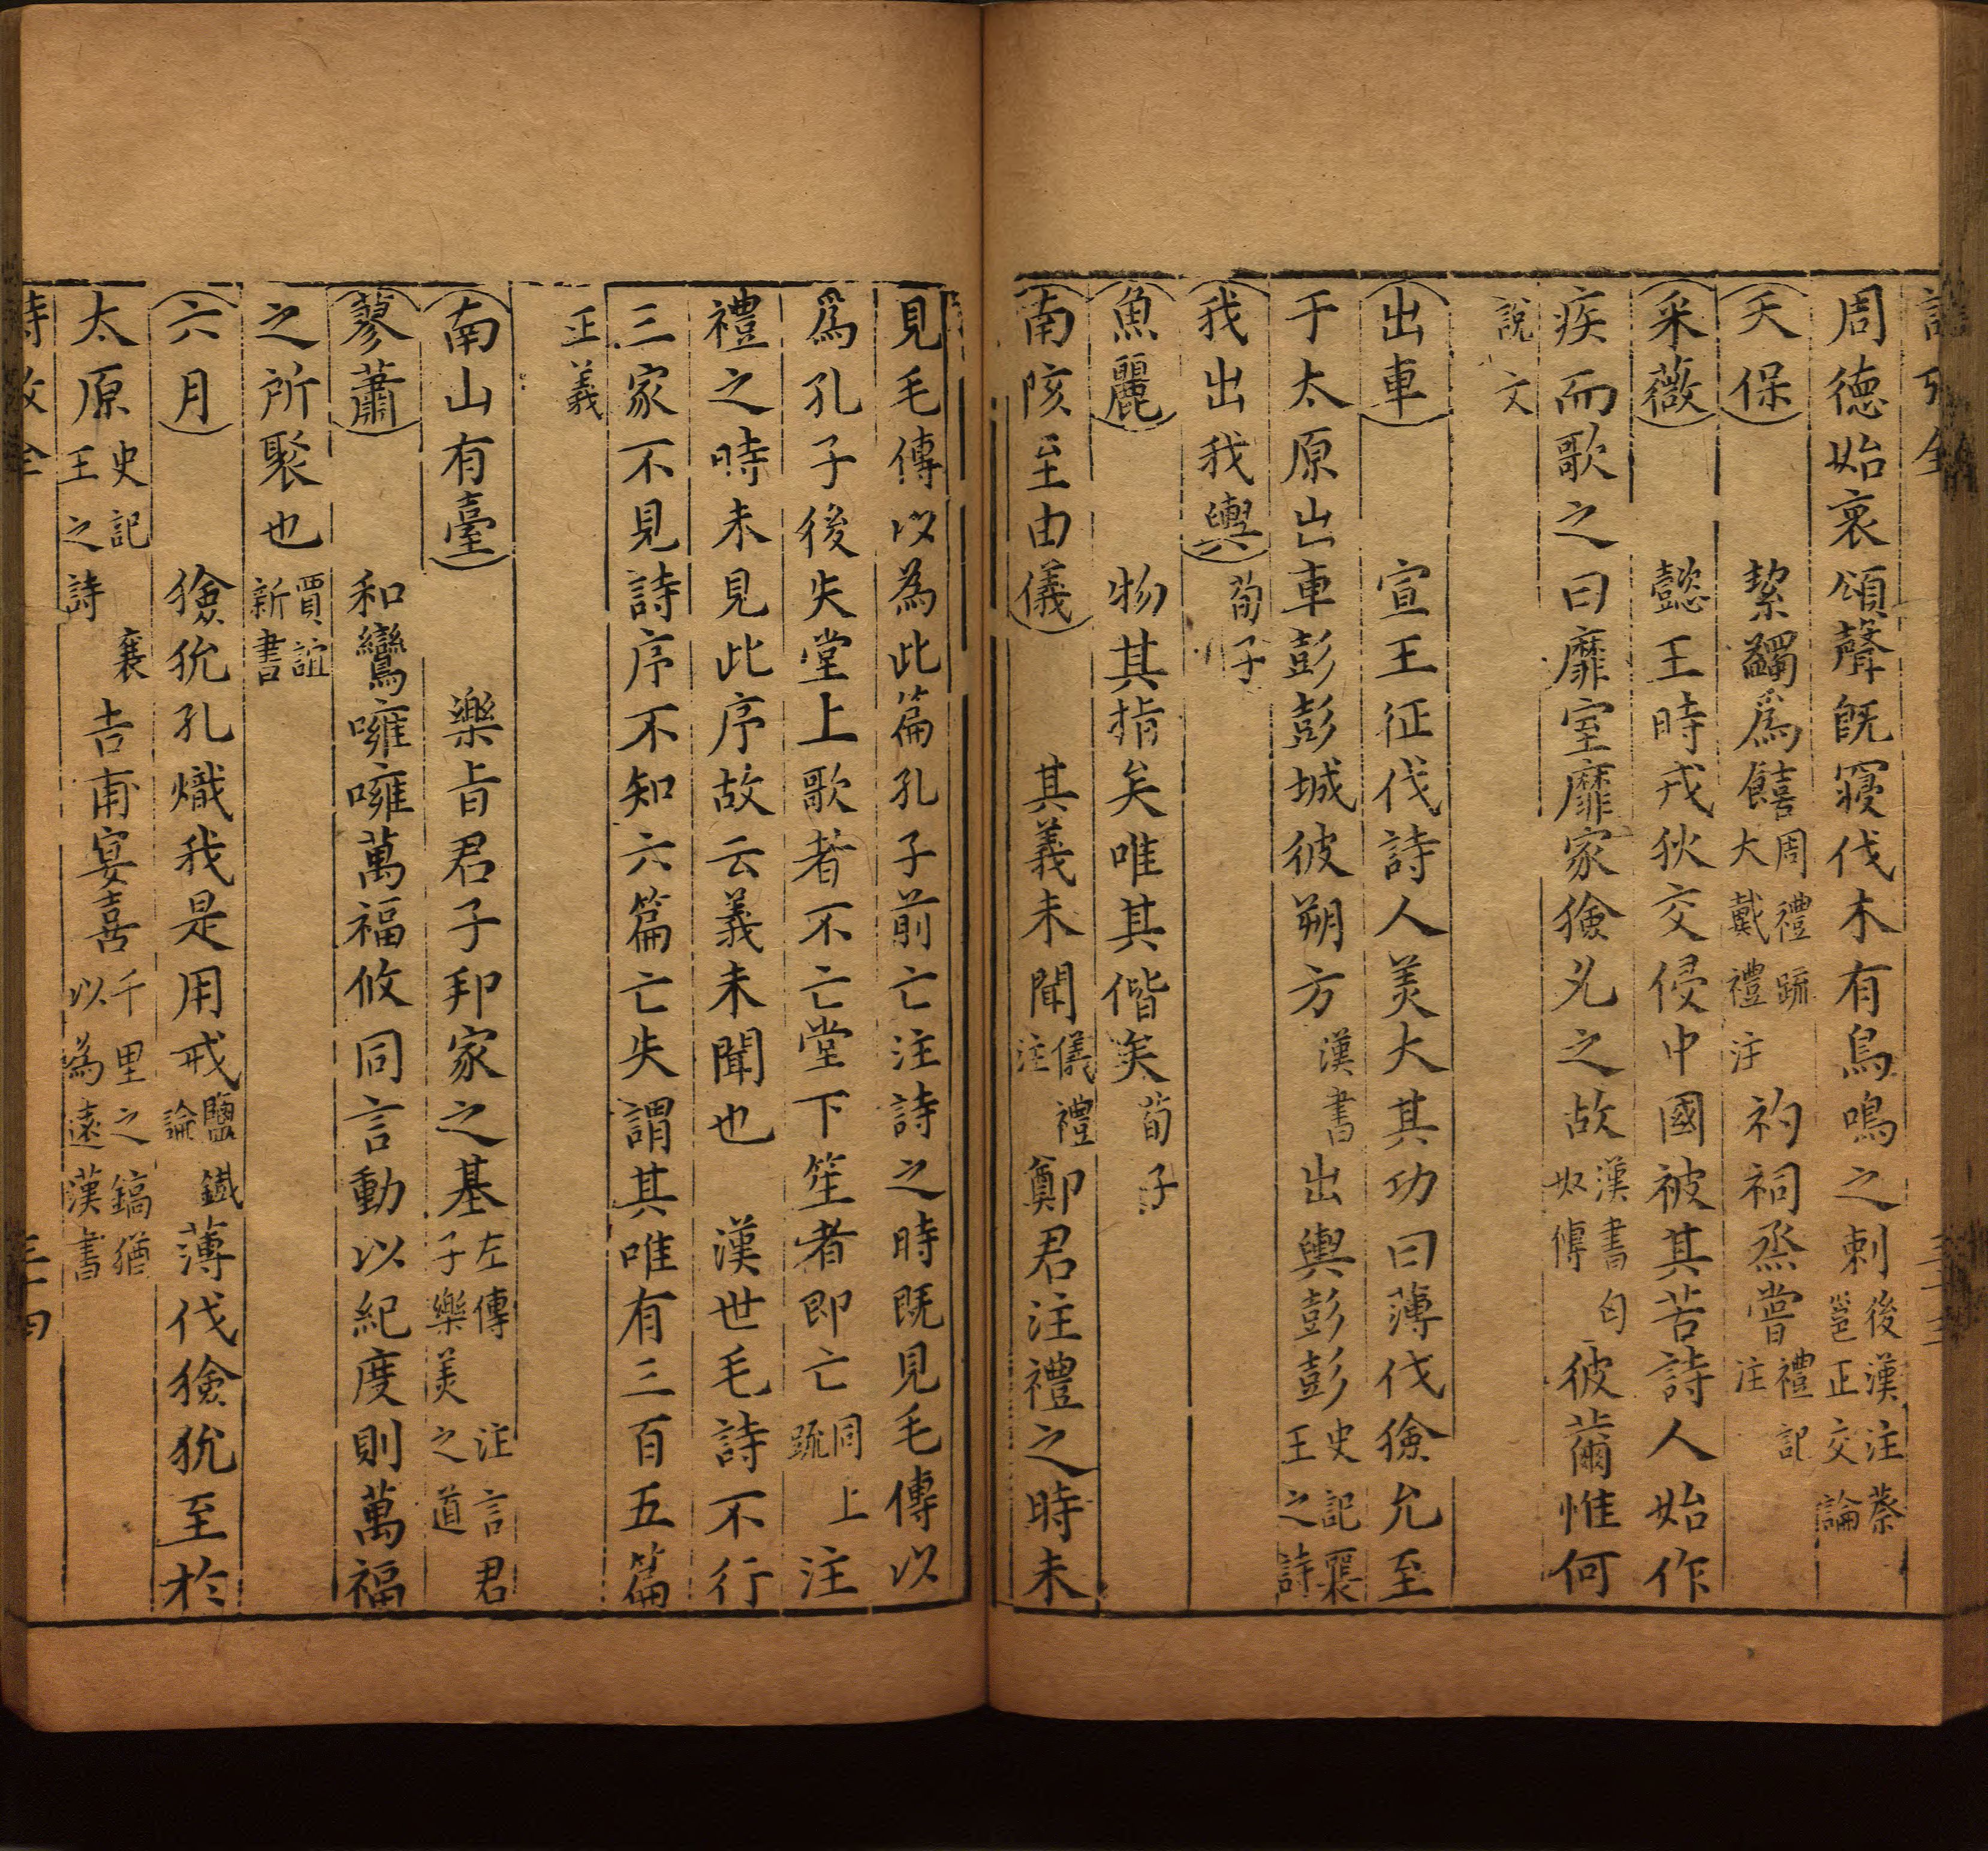 周德始衰頌聲既寢伐木有鳥鳴之刺後漢注蔡邕正交論
天保 絜蠲爲饎周禮疏大戴禮注 礿祠烝嘗禮記注
采薇 懿王時戎狄交侵中國被其苦詩人始作
疾而歌之曰靡室靡家獫允之故漢書匈奴傳 彼薾惟何
說文
出車 宣王征伐詩人美大其功曰薄伐獫允至
于太原出車彭彭城彼朔方漢書 出輿彭彭史記襄王之詩
我出我輿荀子
魚麗 物其指矣唯其偕矣荀子
南陔至由儀 其義未聞儀禮注 鄭君注禮之時未
見毛傳以為此篇孔子前亡注詩之時既見毛傳以
爲孔子後失堂上歌者不亡堂下笙者即亡同上疏 注
禮之時未見此序故云義未聞也 漢世毛詩不行
三家不見詩序不知六篇亡失謂其唯有三百五篇
正義
南山有臺 樂旨君子邦家之基左傳注言君子樂美之道
蓼蕭 和鸞噰噰萬福攸同言動以紀度則萬福
之所聚也賈誼新書
六月 獫狁孔熾我是用戒鹽鐵論 薄伐獫狁至於
太原史記襄王之詩 吉甫宴喜千里之鎬猶以為遠漢書